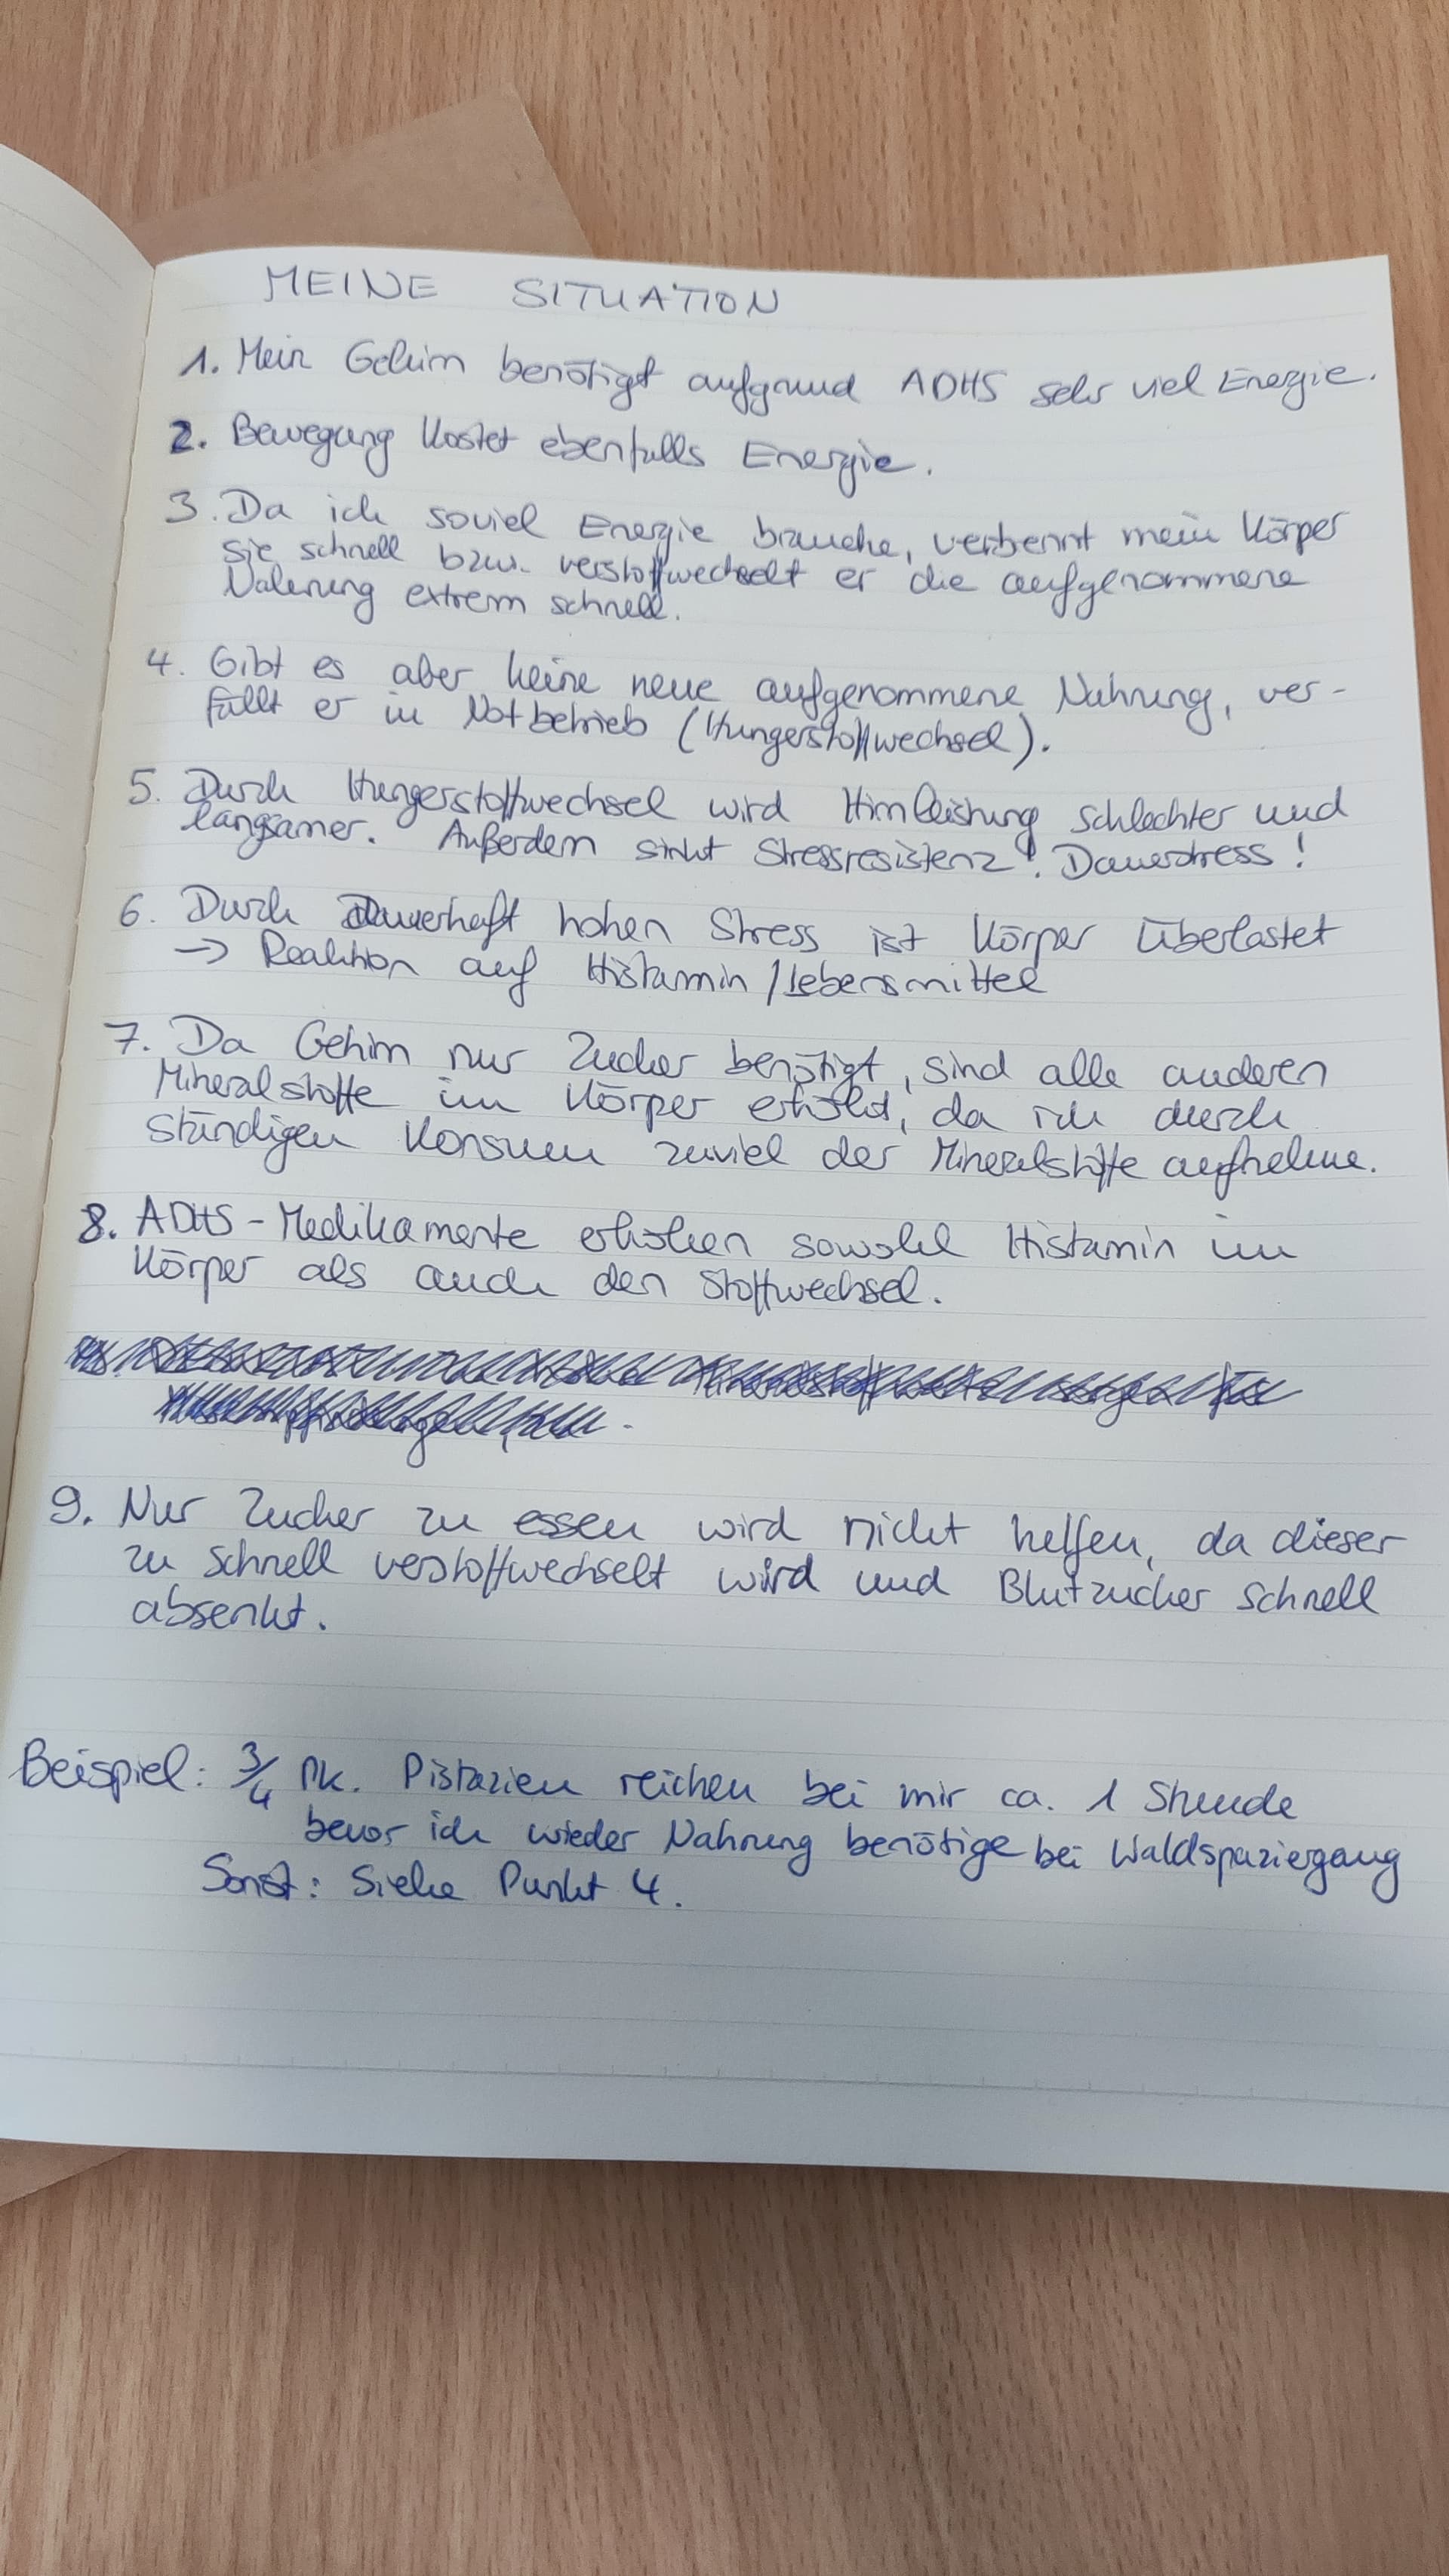 MEINE SITUATION
1. Mein Gehirn benötigt aufgrund ADHS sehr viel Energie.
2. Bewegung kostet ebenfalls Energie.
3. Da ich soviel Energie brauche, verbennt mein Körper
sie schnell bzw. verstoffwechselt er die aufgenommene
Nahrung extrem schnell.
4. Gibt es aber keine neue aufgenommene Nahrung, ver-
fällt er in Notbetrieb (Hungerstoffwechsel).
5. Durch Hungerstoffwechsel wird Hirnleistung schlechter und
langsamer. Außerdem sinkt Stressresistenz! Dauerstress!
6. Durch dauerhaft hohen Stress ist Körper überlastet
→ Reaktion auf Histamin / Lebensmittel
7. Da Gehirn nur Zucker benötigt, sind alle anderen
Mineralstoffe im Körper erhöht, da ich durch
ständigen Konsum zuviel der Mineralstoffe aufnehme.
8. ADHS-Medikamente erhöhen sowohl Histamin im
Körper als auch den Stoffwechsel.
9. Nur Zucker zu essen wird nicht helfen, da dieser
zu schnell verstoffwechselt wird und Blutzucker schnell
absenkt.
Beispiel: 3/4 Pk. Pistazien reichen bei mir ca. 1 Stunde
bevor ich wieder Nahrung benötige bei Waldspaziergang
Sonst: Siehe Punkt 4.